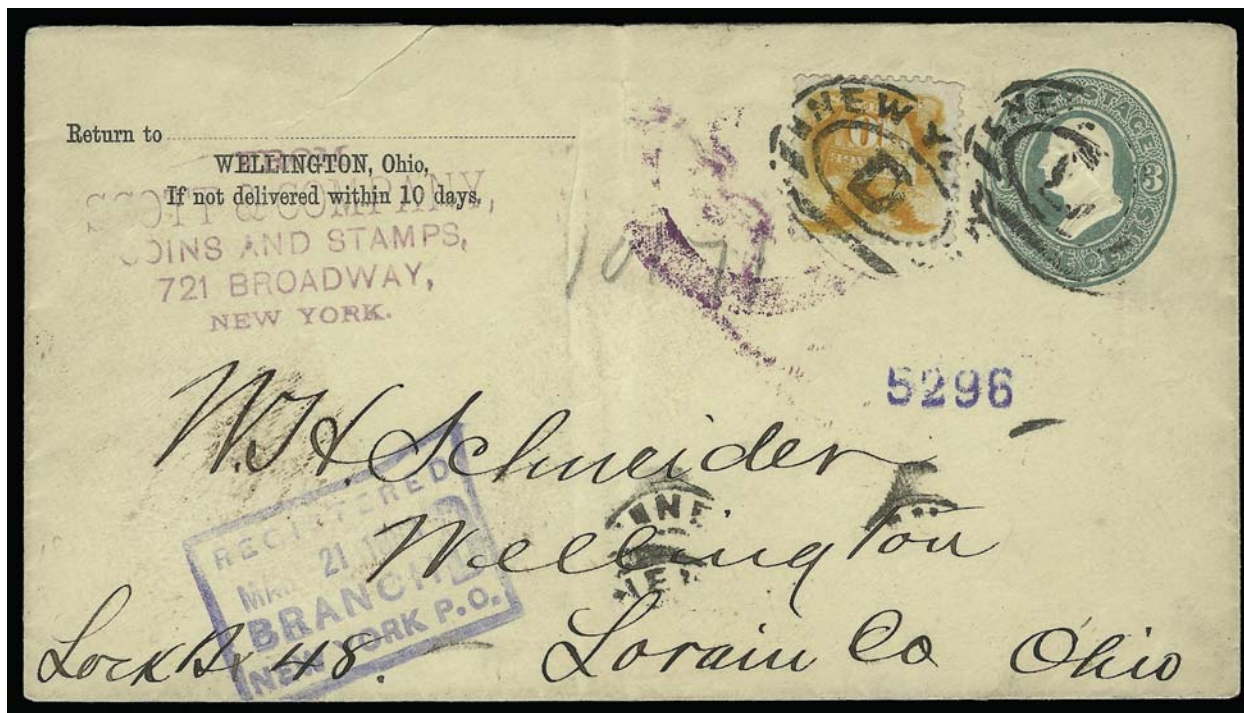 Return to
WELLINGTON, Ohio,
If not delivered within 10 days.
FROM
SCOTT & COMPANY,
COINS AND STAMPS,
721 BROADWAY,
NEW YORK.
NEW Y
D
10
3
5296
W. H. Schneider
Wellington
Lock Bx 48. Lorain Co Ohio
REGISTERED
MAR 21
BRANCH D
NEW YORK P.O.